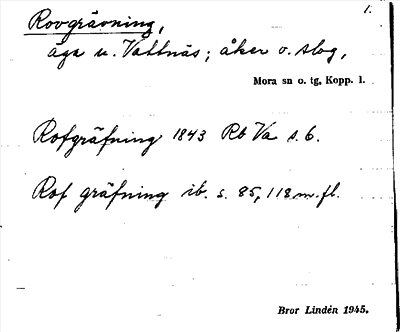 1.
Rovgrävning,
äga u. Vattnäs; åker o. slog,
Mora sn o. tg, Kopp. l.
Rofgräfning 1843 Rb Va s. 6.
Rof gräfning ib. s. 85, 118 m. fl.
Bror Lindén 1945.